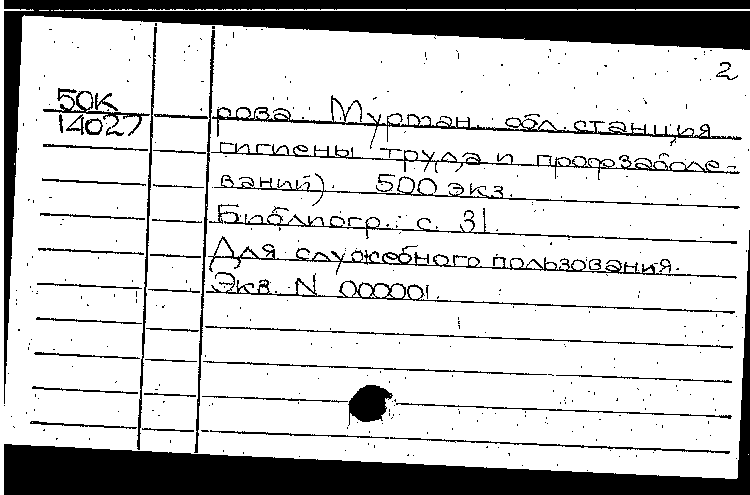 2
50К
14027
рова. Мурман. обл. станция
гигиены труда и профзаболе-
ваний). 500 экз.
Библиогр.: с. 31.
Для служебного пользования.
Экз. N 000001.